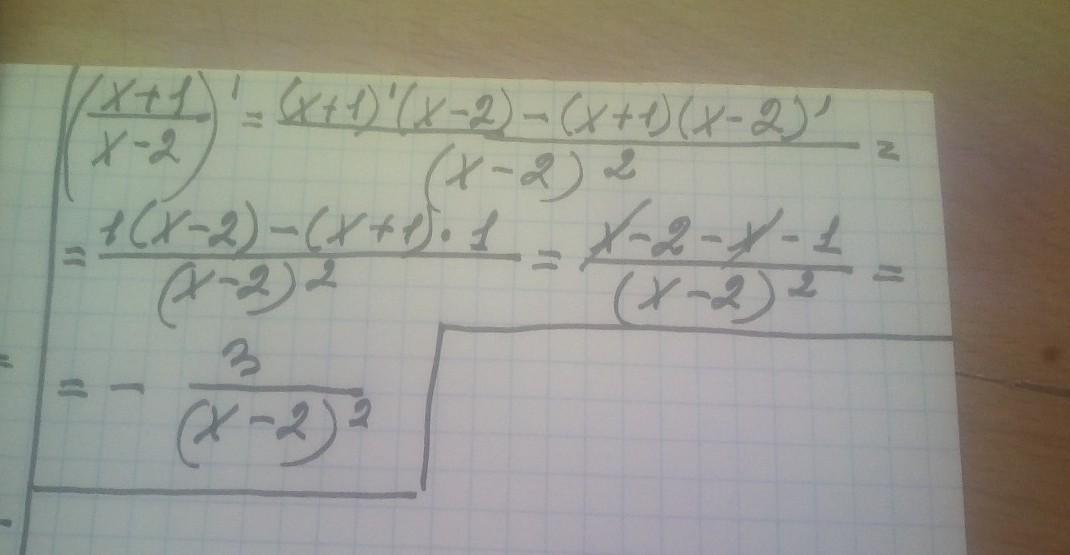 ((x+1)/(x-2))' = ((x+1)'(x-2)-(x+1)(x-2)')/(x-2)² =
= (1(x-2)-(x+1)·1)/(x-2)² = (x-2-x-1)/(x-2)² =
= - 3/(x-2)²